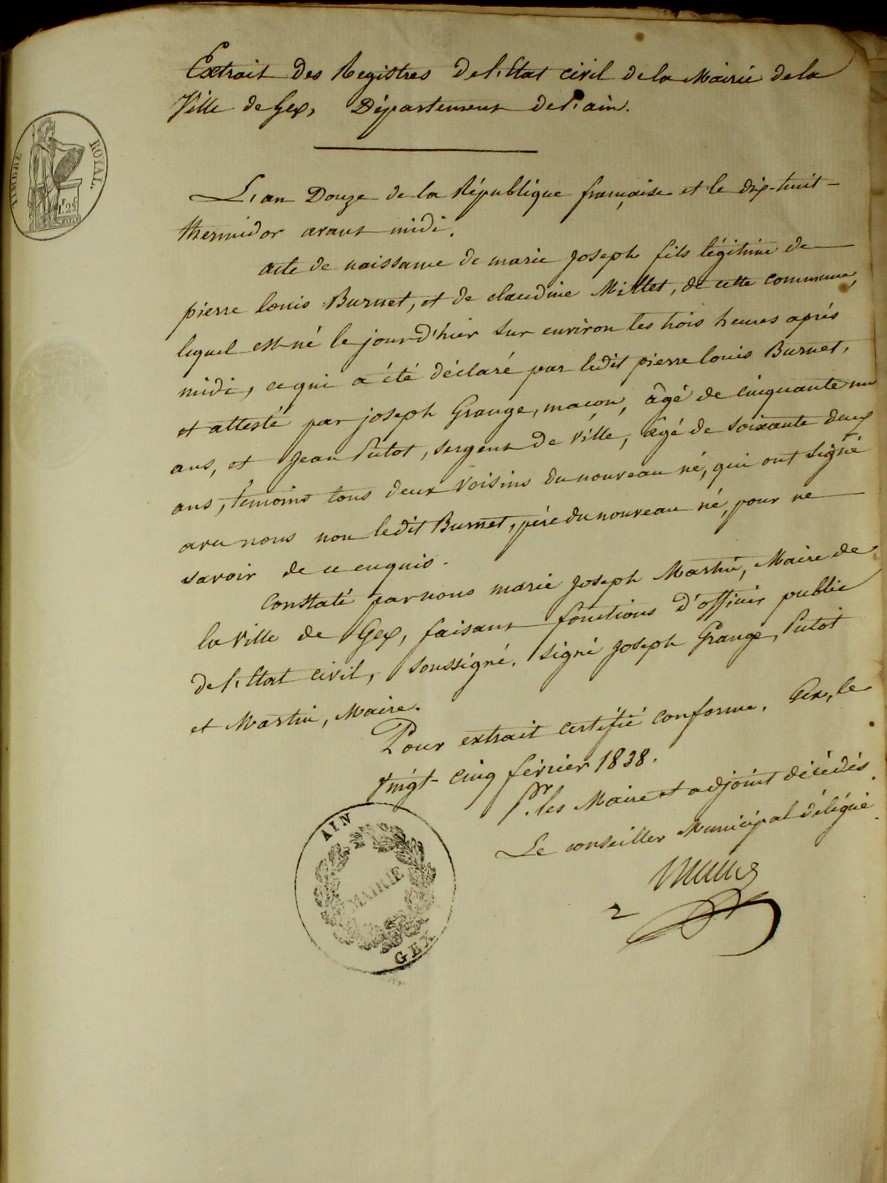 Extrait des Registres de l'Etat civil de la Mairie de la
Ville de Gex, Département de l'ain.
TIMBRE ROYAL.
L'an Douze de la République française et le dix-huit
thermidor avant midi.
acte de naissance de marie joseph fils légitime de
pierre louis Burnet, et de claudine Millet, de cette commune,
lequel est né le jour d'hier sur environ les trois heures après
midi, ce qui a été déclaré par ledit pierre louis Burnet,
et attesté par joseph Grange, maçon, âgé de cinquante un
ans, et Jean Putot, sergent de ville, âgé de soixante deux
ans, temoins tous deux voisins du nouveau né, qui ont signé
avec nous non ledit Burnet, père du nouveau né, pour ne
savoir de ce enquis.
Constaté par nous marie joseph Martin, Maire de
la ville de Gex, faisant fonctions d'officier public
de l'Etat civil, soussigné. signé joseph Grange, Putot
et Martin, Maire.
Pour extrait certifié conforme. Gex, le
vingt-cinq février 1838.
Pr. les Maire et adjoint décédés
Le conseiller Municipal délégué.
AIN
MAIRIE
GEX
2